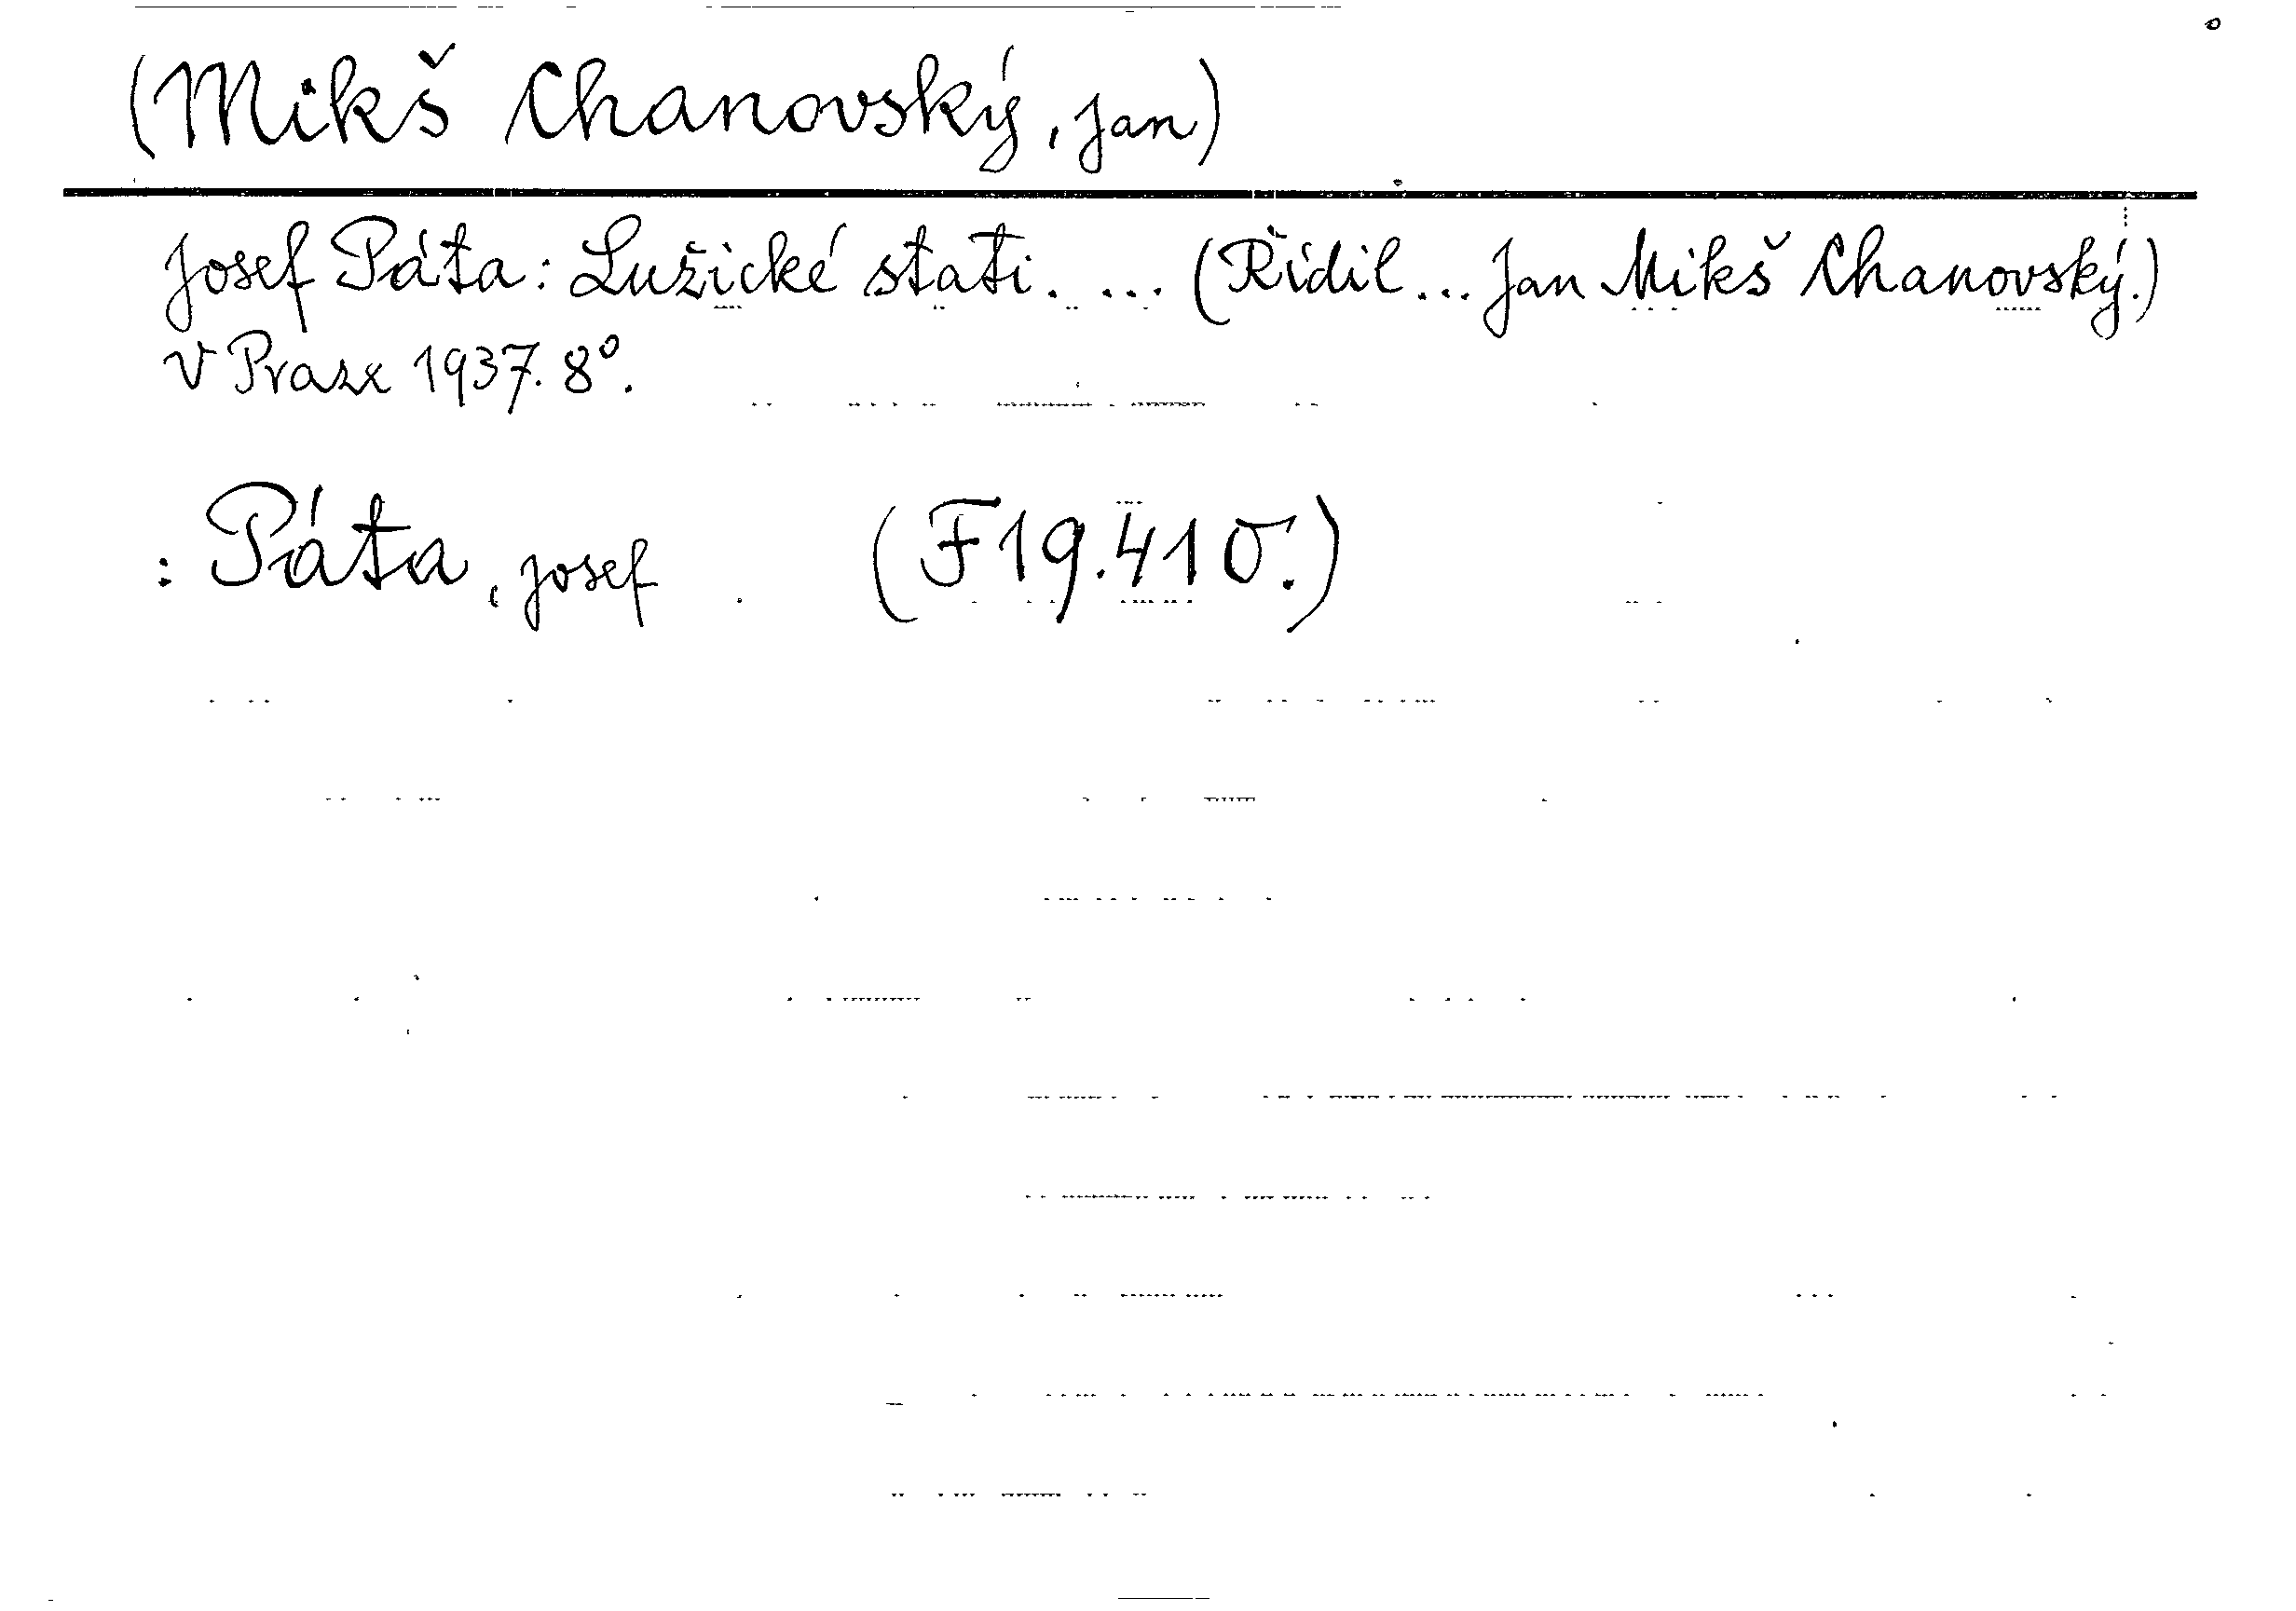 (Mikš Chanovský, Jan)
Josef Páta: Lužické stati. ... (Řídil... Jan Mikš Chanovský.)
V Praze 1937. 8°.
: Páta, Josef (F19.410.)